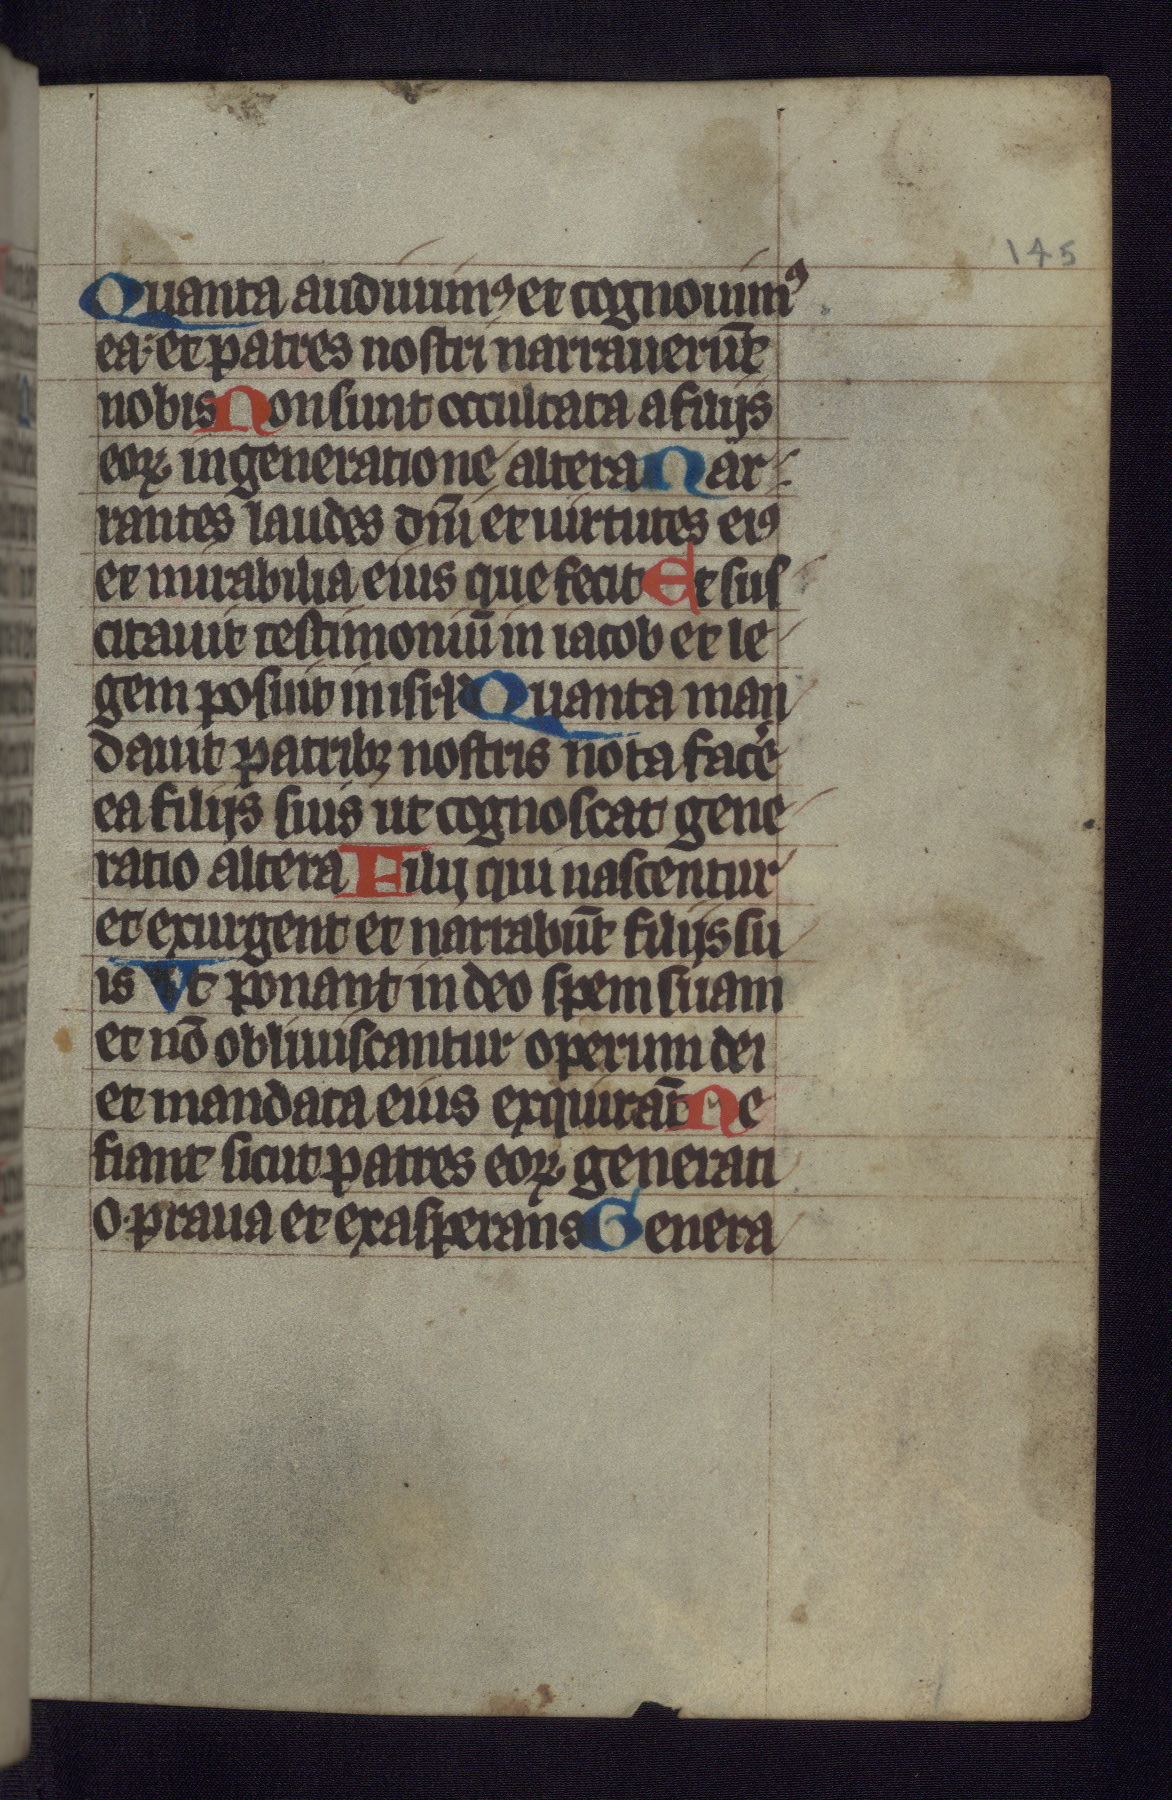 145
Quanta audiuimꝰ et cognouimꝰ
ea· et patres nostri narrauerūt
nobis Non sunt occultata a filijs
eoꝝ in generatione altera Nar-
rantes laudes dn̄i et uirtutes eiꝰ
et mirabilia eius que fecit Et sus
citauit testimoniū in iacob et le
gem posuit in isrl̄ Quanta man
dauit patribꝫ nostris nota facere
ea filijs suis ut cognoscat gene
ratio altera Filij qui nascentur
et exurgent et narrabūt filijs su
is Vt ponant in deo spem suam
et nō obliuiscantur operum dei
et mandata eius exquirāt Ne
fiant sicut patres eoꝝ generati
o praua et exasperans Genera